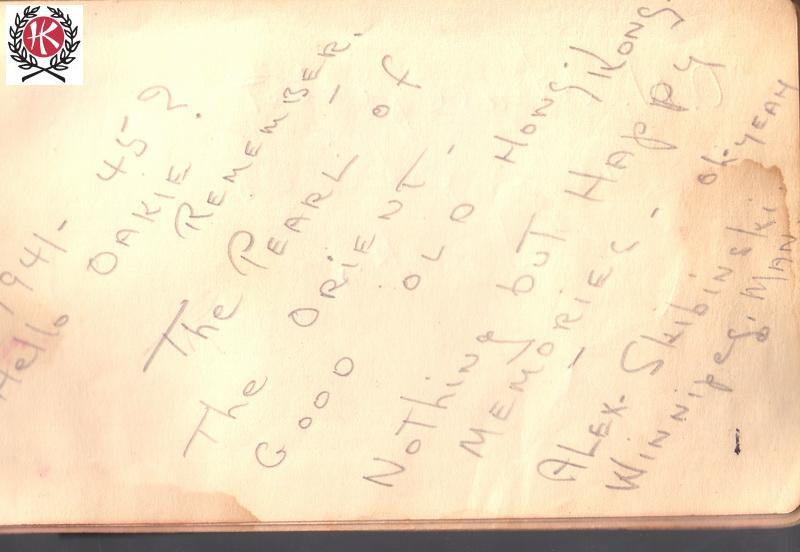 HK
1941-45?
Hello OAKIE
REMEMBER.
The PEARL of
The ORIENT-
GOOD OLD HONG KONG.
NOTHING but HAPPY
MEMORIES-
ALEX. SKIBINSKI. OK-YEAH
WINNIPEG. MAN